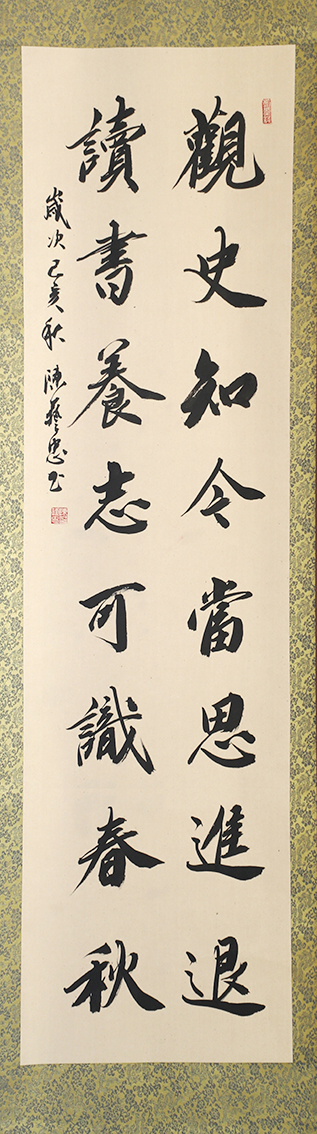 觀史知今當思進退
讀書養志可識春秋
歲次己亥秋 陳藝忠书